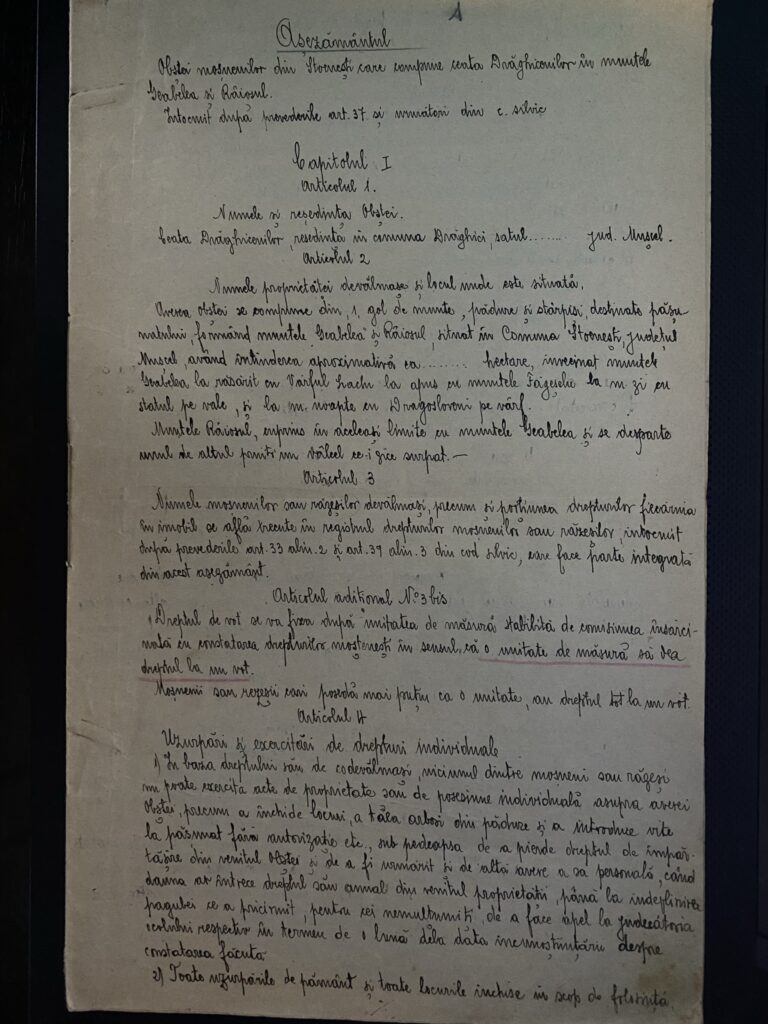 1
Așezământul
Obstei moșnenilor din Stoenești care compune ceata Drăghicenilor în muntele
Geabelea și Râiosul.
Întocmit după prevederile art. 37 și următori din c. silvic
Capitolul I
Articolul 1.
Numele și reședința Obstei.
Ceata Drăghicenilor, reședința în comuna Drăghici, satul........ jud. Mușcel.
Articolul 2
Numele proprietăței devălmașe și locul unde este situată.
Averea obstei se compune din, 1. gol de munte, pădure și stârpiși, destinate pășu-
natului, formând muntele Geabelea și Râiosul, situat în Comuna Stoenești, județul
Mușcel, având întinderea aproximativă ca ........ hectare, învecinat muntele
Geabelea la răsărit cu Vârful Lachu la apus cu muntele Făgețelu la m. zi cu
statul pe vale, și la m. noapte cu Dragosloveni pe vârf.
Muntele Râiosul, cuprins în aceleași limite cu muntele Geabelea și se desparte
unul de altul printr'un vâlcel ce-i zice surpat.—
Articolul 3
Numele moșnenilor sau răzeșilor devălmași, precum și porțiunea drepturilor fiecăruia
în imobil se află trecute în registrul drepturilor moșnenilor sau răzeșilor, întocmit
după prevederile art. 33 alin. 2 și art. 37 alin. 3 din cod silvic, care face parte integrată
din acest așezământ.
Articolul adițional No. 3 bis
Dreptul de vot se va fixa după unitatea de măsură stabilită de comisiunea însărci-
nată cu constatarea drepturilor moștenești în sensul, că o unitate de măsură să dea
dreptul la un vot.
Moșnenii sau rezeșii cari posedă mai puțin ca o unitate, au dreptul tot la un vot.
Articolul 4
Uzurpări și exercităei de drepturi individuale
1) În baza dreptului său de codevălmași, niciunul dintre moșneni sau răzeși
nu poate exercita acte de proprietate sau de posesiune individuală asupra averei
Obstei, precum a închide locuri, a tăia arbori din pădure și a introduce vite
la pășunat fără autorizație etc., sub pedeapsa de a pierde dreptul de împăr-
tășire din venitul Obstei și de a fi urmărit și de altă avere a sa personală, când
dauna ar întrece dreptul său anual din venitul proprietății, până la îndeplinirea
pagubei ce a pricinuit, pentru cei nemulțumiți, de a face apel la judecătoria
ocolului respectiv în termeu de o lună dela data încunoștințării despre
constatarea făcută
2) Toate uzurpările de pământ și toate locurile închise în scop de folosință